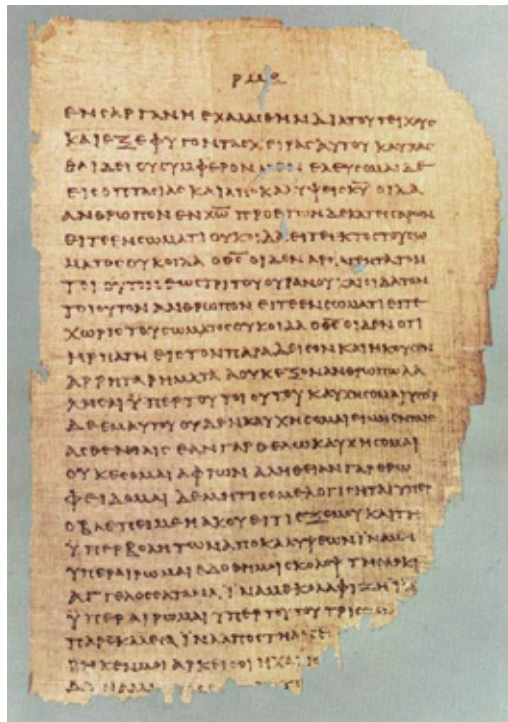 ΕΝ ΣΑΡΓΑΝΗ ΕΧΑΛΑΣΘΗΝ ΔΙΑ ΤΟΥ ΤΕΙΧΟΥΣ
ΚΑΙ ΕΞΕΦΥΓΟΝ ΤΑΣ ΧΕΙΡΑΣ ΑΥΤΟΥ ΚΑΥΧΑΣ
ΘΑΙ ΔΕΙ ΟΥ ΣΥΜΦΕΡΟΝ ΕΛΕΥΣΟΜΑΙ ΔΕ
ΕΙΣ ΟΠΤΑΣΙΑΣ ΚΑΙ ΑΠΟΚΑΛΥΨΕΙΣ Κ̅Υ̅ ΟΙΔΑ
ΑΝΘΡΩΠΟΝ ΕΝ Χ̅Ω̅ ΠΡΟ ΕΤΩΝ ΔΕΚΑΤΕΣΣΑΡΩΝ
ΕΙΤΕ ΕΝ ΣΩΜΑΤΙ ΟΥΚ ΟΙΔΑ ΕΙΤΕ ΕΚΤΟΣ ΤΟΥ ΣΩ
ΜΑΤΟΣ ΟΥΚ ΟΙΔΑ Ο Θ̅Σ̅ ΟΙΔΕΝ ΑΡΠΑΓΕΝΤΑ ΤΟΝ
ΤΟΙΟΥΤΟΝ ΕΩΣ ΤΡΙΤΟΥ ΟΥΡΑΝΟΥ ΚΑΙ ΟΙΔΑ ΤΟΝ
ΤΟΙΟΥΤΟΝ ΑΝΘΡΩΠΟΝ ΕΙΤΕ ΕΝ ΣΩΜΑΤΙ ΕΙΤΕ
ΧΩΡΙΣ ΤΟΥ ΣΩΜΑΤΟΣ ΟΥΚ ΟΙΔΑ Ο Θ̅Σ̅ ΟΙΔΕΝ ΟΤΙ
ΗΡΠΑΓΗ ΕΙΣ ΤΟΝ ΠΑΡΑΔΕΙΣΟΝ ΚΑΙ ΗΚΟΥΣΕΝ
ΑΡΡΗΤΑ ΡΗΜΑΤΑ Α ΟΥΚ ΕΞΟΝ ΑΝΘΡΩΠΩ ΛΑ
ΛΗΣΑΙ ΥΠΕΡ ΤΟΥ ΤΟΙΟΥΤΟΥ ΚΑΥΧΗΣΟΜΑΙ ΥΠΕΡ
ΔΕ ΕΜΑΥΤΟΥ ΟΥΔΕΝ ΚΑΥΧΗΣΟΜΑΙ ΕΙ ΜΗ ΕΝ ΤΑΙΣ
ΑΣΘΕΝΕΙΑΙΣ ΕΑΝ ΓΑΡ ΘΕΛΩ ΚΑΥΧΗΣΟΜΑΙ
ΟΥΚ ΕΣΟΜΑΙ ΑΦΡΩΝ ΑΛΗΘΕΙΑΝ ΓΑΡ ΕΡΩ
ΦΕΙΔΟΜΑΙ ΔΕ ΜΗ ΤΙΣ ΕΜΕ ΛΟΓΙΣΗΤΑΙ ΥΠΕΡ
Ο ΒΛΕΠΕΙ ΜΕ Η ΑΚΟΥΕΙ ΤΙ ΕΞ ΕΜΟΥ ΚΑΙ ΤΗ
ΥΠΕΡΒΟΛΗ ΤΩΝ ΑΠΟΚΑΛΥΨΕΩΝ ΙΝΑ ΜΗ
ΥΠΕΡΑΙΡΩΜΑΙ ΕΔΟΘΗ ΜΟΙ ΣΚΟΛΟΨ ΤΗ ΣΑΡΚΙ
ΑΓΓΕΛΟΣ ΣΑΤΑΝΑ ΙΝΑ ΜΕ ΚΟΛΑΦΙΖΗ
ΥΠΕΡΑΙΡΩΜΑΙ ΥΠΕΡ ΤΟΥΤΟΥ ΤΡΙΣ
ΠΑΡΕΚΑΛΕΣΑ ΙΝΑ ΑΠΟΣΤΗ ΑΠ
ΡΗΚΕΝ ΜΟΙ ΑΡΚΕΙ ΣΟΙ Η ΧΑΡΙΣ